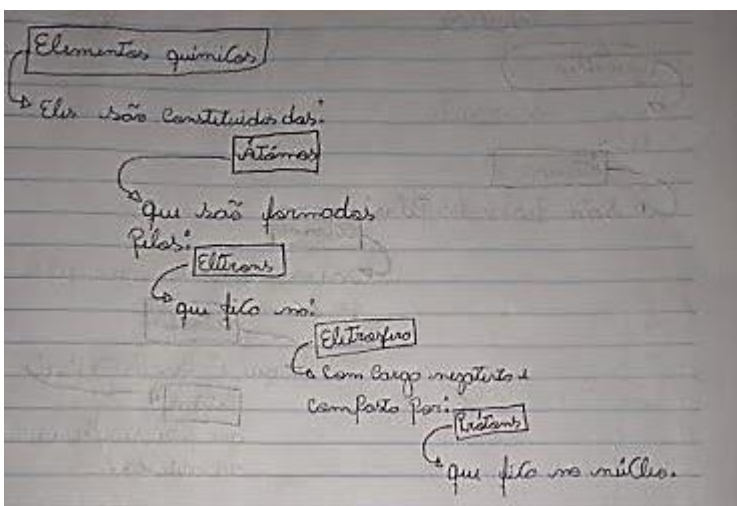 Elementos químicos
Eles são constituidos das:
Átomos
que são formados
Pelos:
Elétrons
que fica na:
Eletrosfera
com carga negativa e
composto por:
Prótons
que fica no núcleo.